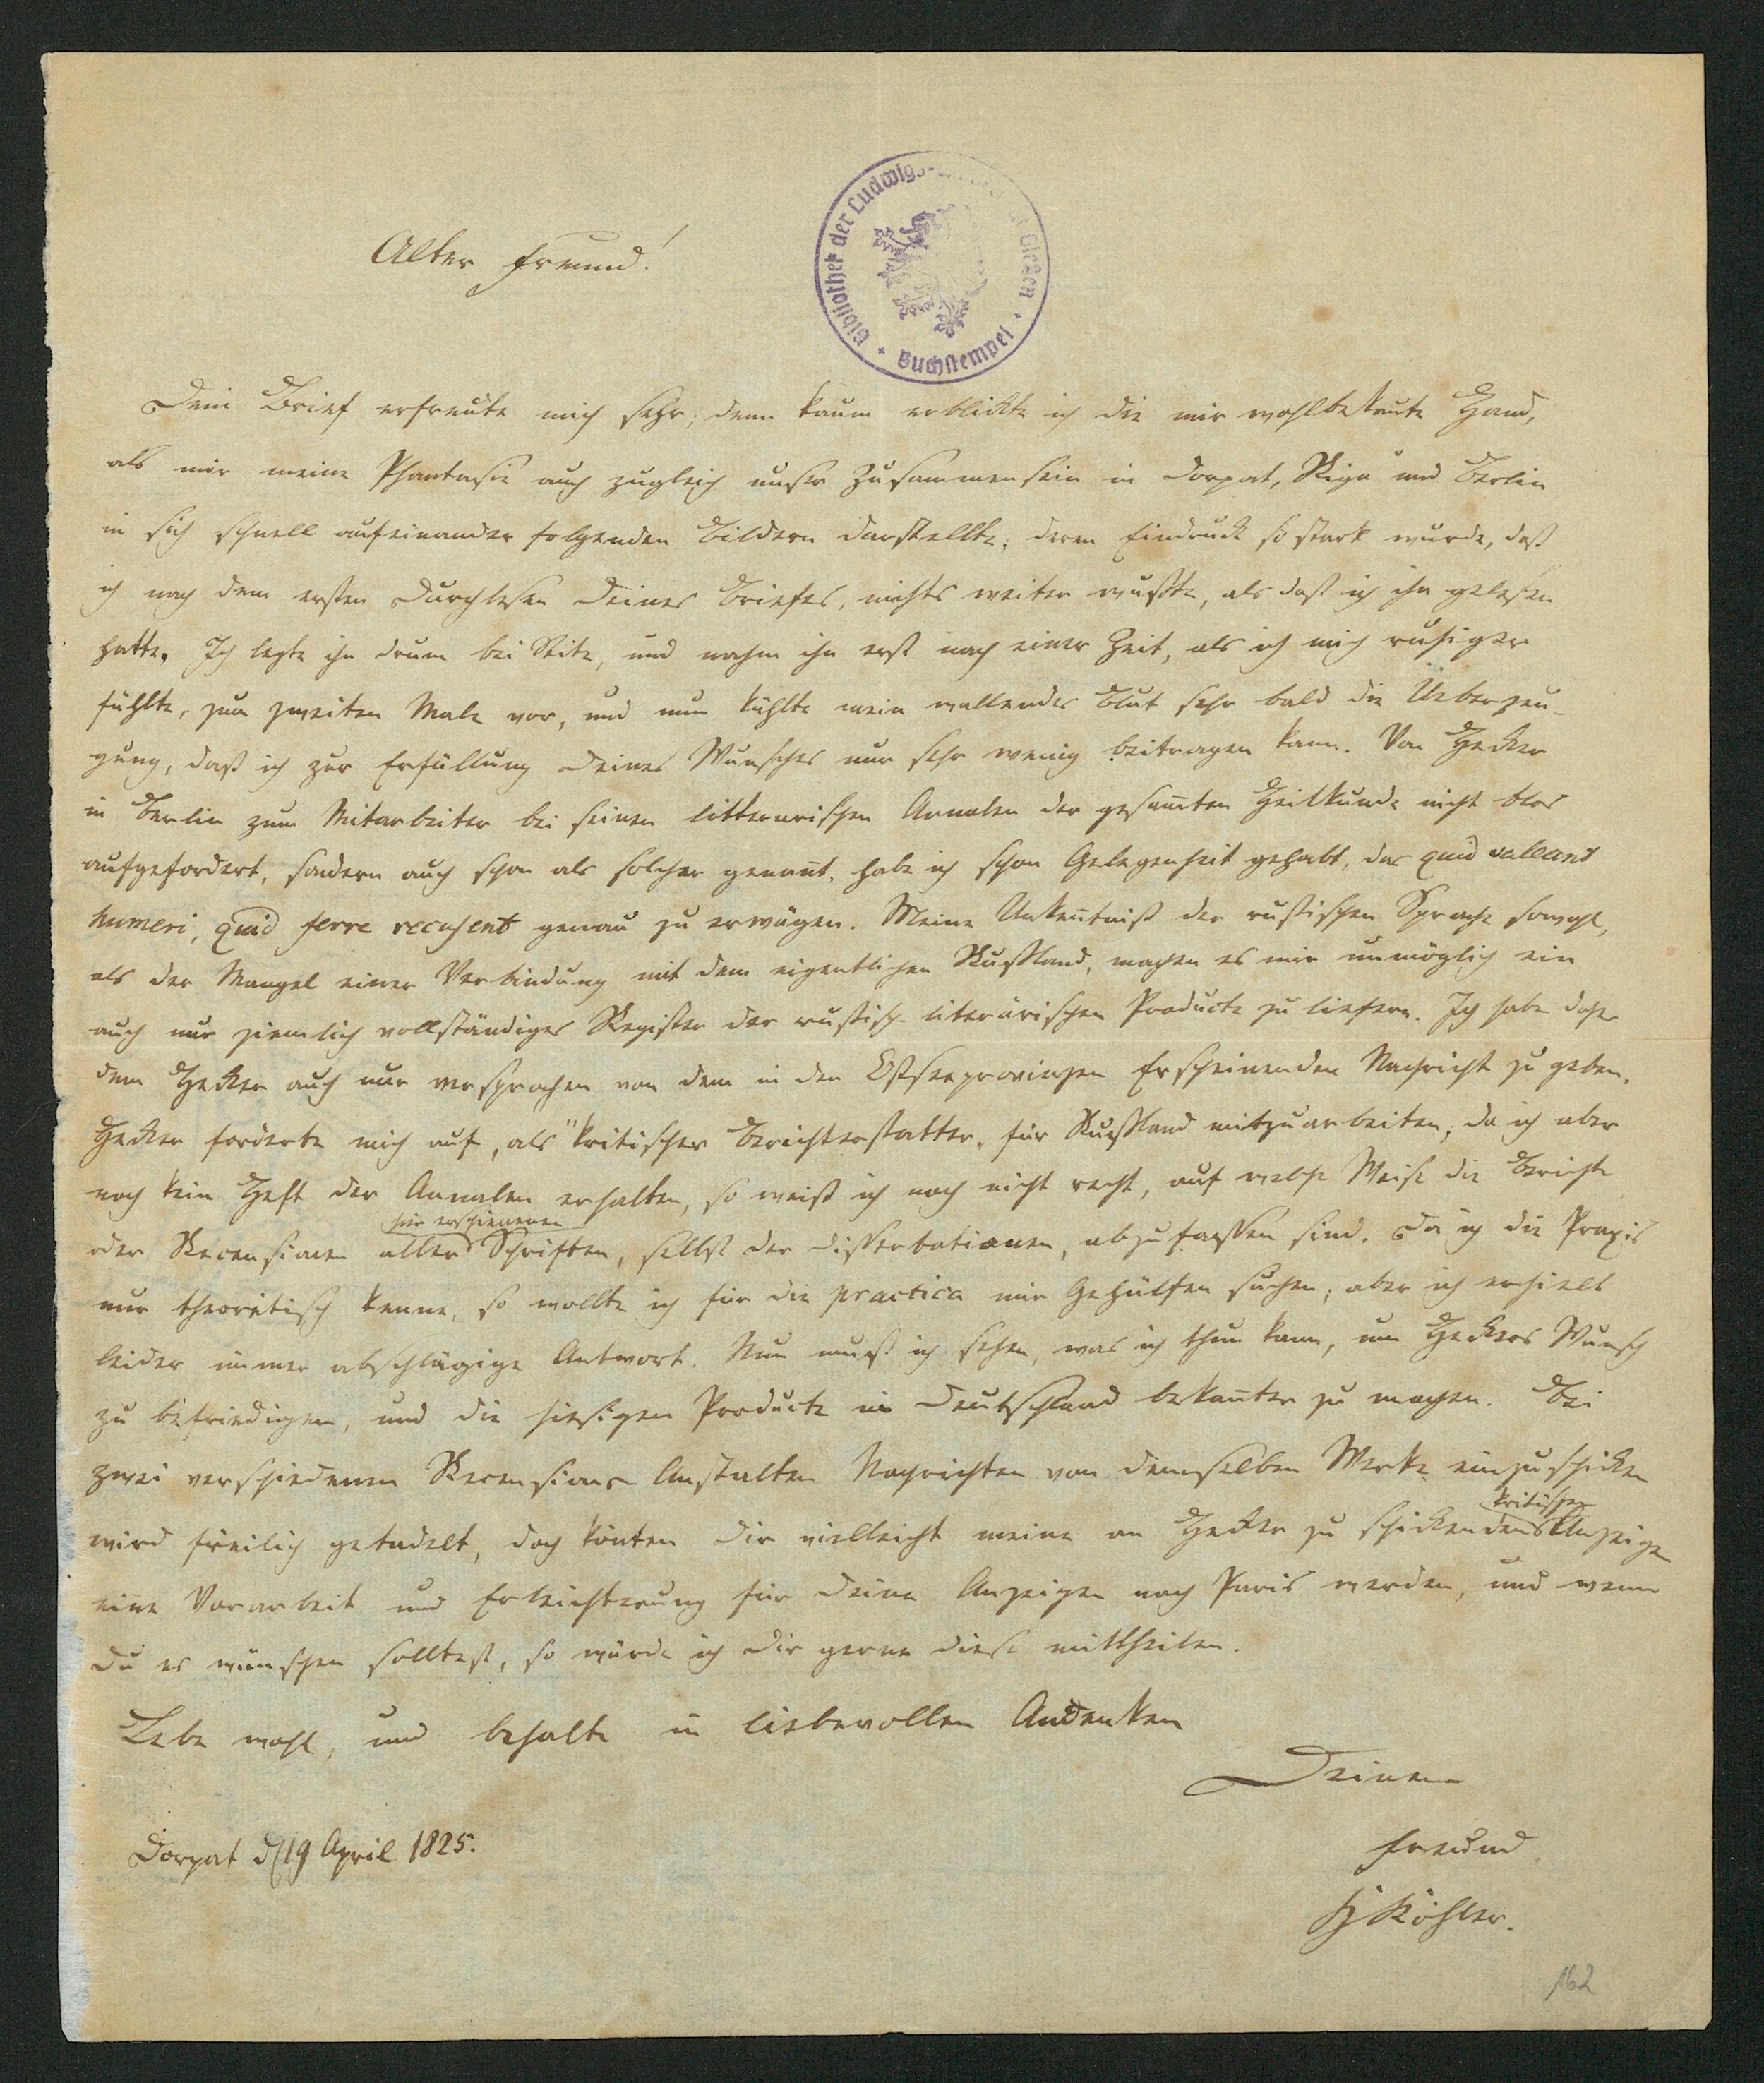 Bibliothek der Ludwigs- Gießen
Buchstempel
Alter Freund!
Dein Brief erfreute mich sehr; denn kaum erblickte ich die mir wohlbekan̄te Hand,
als mir meine Phantasie auch zugleich unser Zusammensein in Dorpat, Riga und Berlin
in sich schnell aufeinander folgenden Bildern darstellte; deren Eindruck so stark wurde, daß
ich nach dem ersten Durchlesen Deines Briefes, nichts weiter wußte, als daß ich ihn gelesen
hatte. Ich legte ihn drum bei Seite, und nahm ihn erst nach einer Zeit, als ich mich ruhiger
fühlte, zum zweiten Male vor, und nun kühlte mein wallendes Blut sehr bald die Ueberzeu-
gung, daß ich zur Erfüllung Deines Wunsches nur sehr wenig beitragen kann. Von Hecker
in Berlin zum Mitarbeiter bei seinen litterarischen Annalen der gesam̄ten Heilkunde nicht blos
aufgefordert, sondern auch schon als solcher genan̄t, habe ich schon Gelegenheit gehabt, das quid valeant
humeri, quid ferre recusent genau zu erwägen. Meine Unken̄tniß der russischen Sprache sowohl,
als der Mangel einer Verbindung mit dem eigentlichen Rußland, machen es mir unmöglich ein
auch nur ziemlich vollständiges Register der russisch-literärischen Producte zu liefern. Ich habe daher
dem Hecker auch nur versprochen von dem in den Ostseeprovinzen Erscheinenden Nachricht zu geben.
Hecker forderte mich auf, als "kritischer Berichterstatter" für Rußland mitzuarbeiten; da ich aber
noch kein Heft der Annalen erhalten, so weiß ich noch nicht recht, auf welche Weise die Berichte
hier erschienenen
oder Recensionen aller Schriften, selbst der Dissertationen, abzufassen sind. Da ich die Praxis
nur theoretisch kenne, so wollte ich für die practica mir Gehülfen suchen; aber ich erhielt
leider immer abschlägige Antwort. Nun muß ich sehen, was ich thun kann, um Heckers Wunsch
zu befriedigen, und die hiesigen Producte in Deutschland bekan̄ter zu machen. Bei
zwei verschiedenen Recensions-Anstalten Nachrichten von demselben Werke einzuschicken
kritischen
wird freilich getadelt, doch kön̄ten Dir vielleicht meine an Hecker zu schickenden Anzeigen
eine Vorarbeit und Erleichterung für Deine Anzeigen nach Paris werden, und wenn
Du es wünschen solltest, so würde ich Dir gerne diese mittheilen.
Lebe wohl, und behalte in liebevollem Andenken
Deinen
Freund
Dorpat d 19 April 1825.
H Köhler.
162